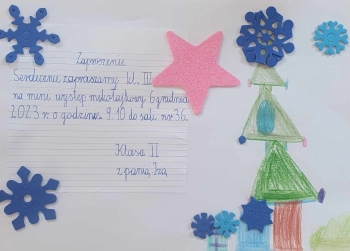 Zaproszenie
Serdecznie zapraszamy kl. III
na mini występ mikołajkowy 6 grudnia
2023 r. o godzinie 9.10 do sali nr 36.
Klasa II
z panią Izą